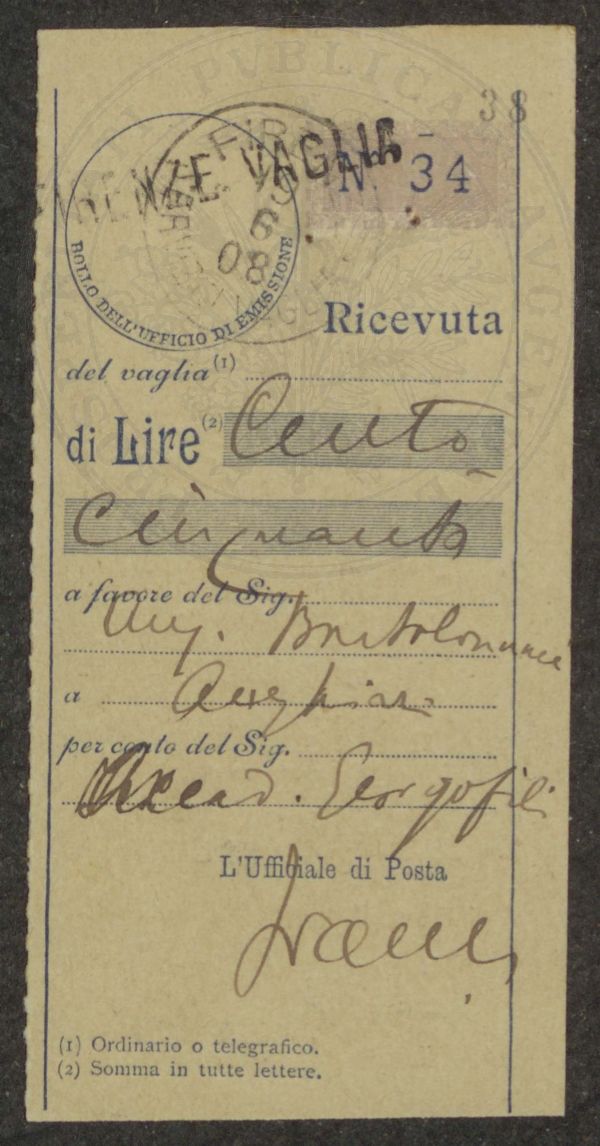 38
FIRENZE VAGLIA
Nº 34
FIRENZE
6
08
BOLLO DELL'UFFICIO DI EMISSIONE
Ricevuta
del vaglia (1)
di Lire (2) Cento
Cinquanta
a favore del Sig.
Ing. Bartolommei
a Anghiari
per conto del Sig.
Accad. Georgofili
L'Ufficiale di Posta
(1) Ordinario o telegrafico.
(2) Somma in tutte lettere.